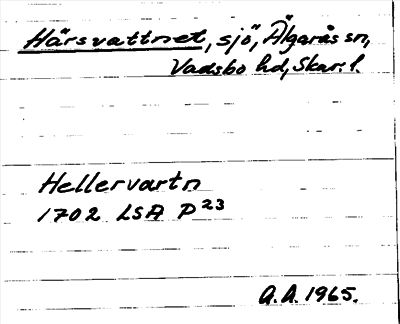 Härsvattnet, sjö, Älgarås sn,
Vadsbo hd, Skar. l.
Hellervartn
1702 LSA P23
A.A. 1965.